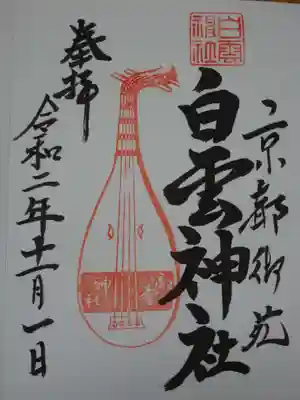 京都御苑
白雲神社
白雲
神社
奉拝
令和二年十一月一日